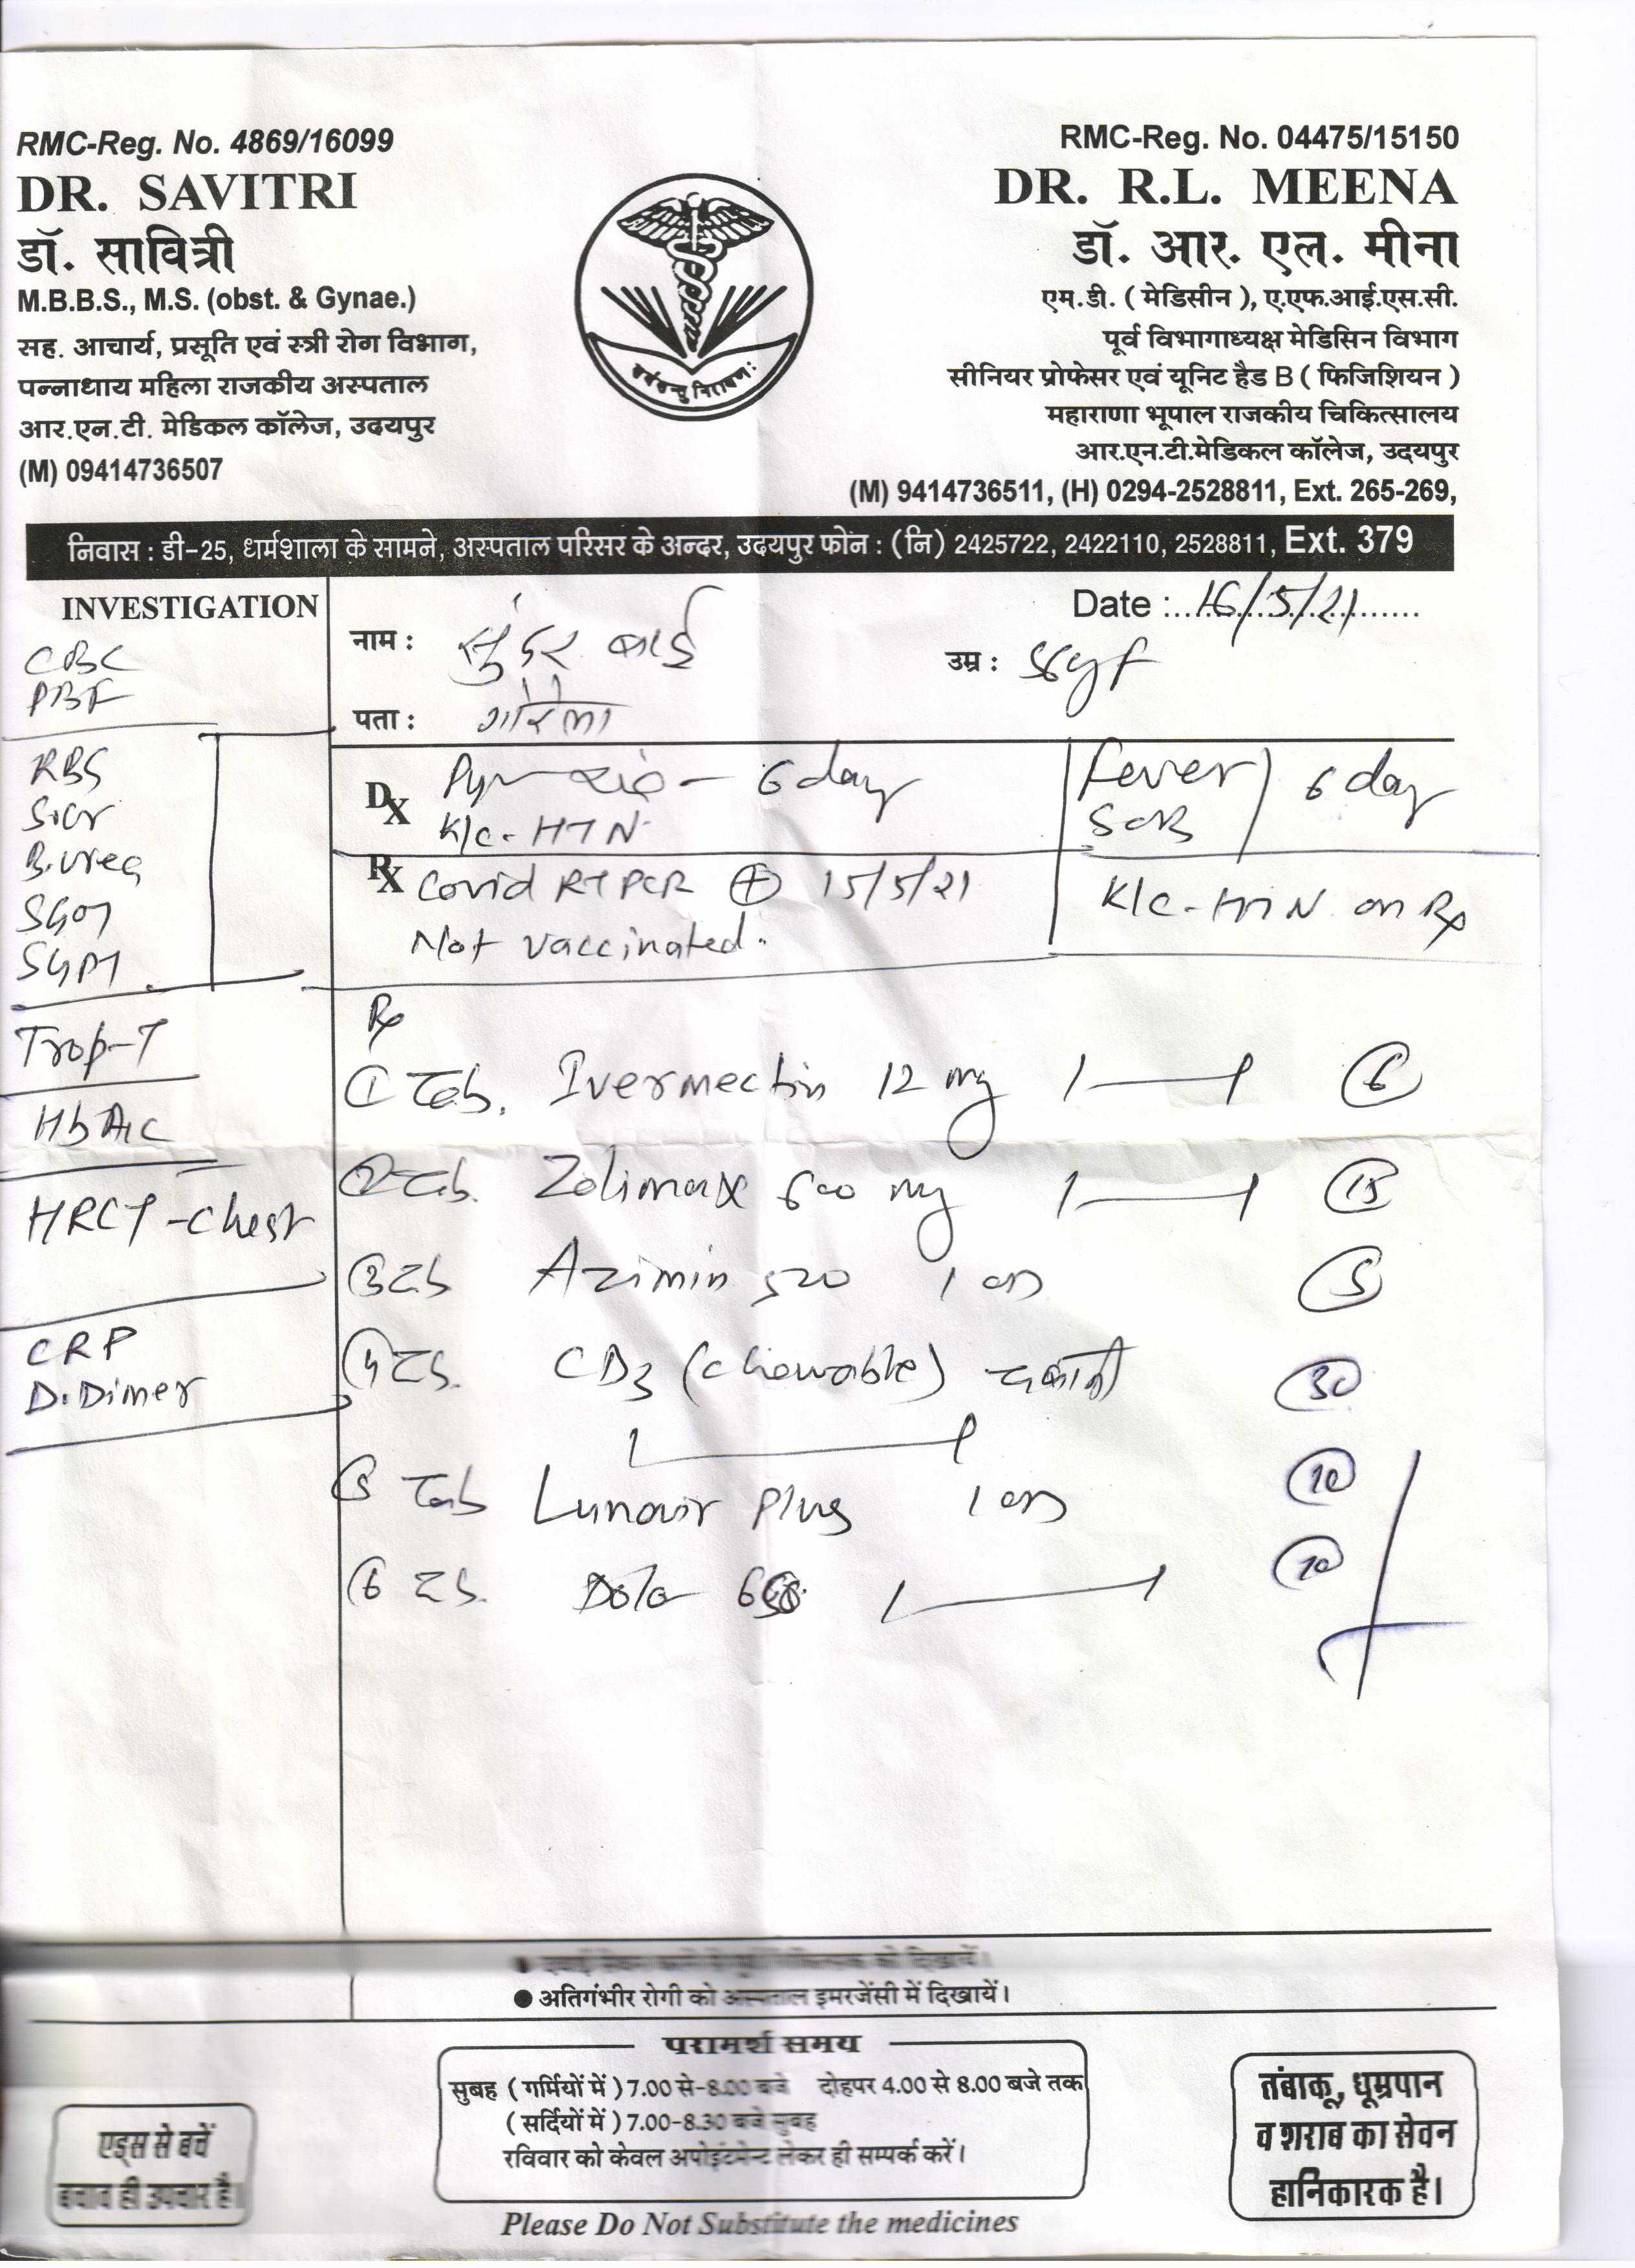 RMC-Reg. No. 4869/16099
DR. SAVITRI
डॉ. सावित्री
M.B.B.S., M.S. (obst. & Gynae.)
सह. आचार्य, प्रसूति एवं स्त्री रोग विभाग,
पन्नाधाय महिला राजकीय अस्पताल
आर.एन.टी. मेडिकल कॉलेज, उदयपुर
(M) 09414736507
RMC-Reg. No. 04475/15150
DR. R.L. MEENA
डॉ. आर. एल. मीना
एम.डी. ( मेडिसीन ), ए.एफ.आई.एस.सी.
पूर्व विभागाध्यक्ष मेडिसिन विभाग
सीनियर प्रोफेसर एवं यूनिट हैड B ( फिजिशियन )
महाराणा भूपाल राजकीय चिकित्सालय
आर.एन.टी.मेडिकल कॉलेज, उदयपुर
(M) 9414736511, (H) 0294-2528811, Ext. 265-269,
निवास : डी-25, धर्मशाला के सामने, अस्पताल परिसर के अन्दर, उदयपुर फोन : (नि) 2425722, 2422110, 2528811, Ext. 379
INVESTIGATION
CBC
PBF
RBS
S.cr
B.urea
SGOT
SGPT
Trop-T
HbA1c
HRCT-Chest
CRP
D.Dimer
Date : 16/5/21
नाम : सुंदर बाई
उम्र :
पता :
Dx 6 day
K/c-HTN
Fever
SOB
6 day
Rx Covid RTPCR ⊕ 15/5/21
Not vaccinated.
K/c-HTN on Rx
Rx
① Tab. Ivermectin 12 mg 1 — 1 ⑥
② Tab. Zolimax 600 mg 1 — 1 ⑮
③ Tab Azimin 500 1 OD ⑤
④ Tab. CD3 (chewable) 30
1 — 1
⑤ Tab Lunavir plus 1 OD ⑩
⑥ Tab. Dolo 650 1 — 1 ⑩
● अतिगंभीर रोगी को अस्पताल इमरजेंसी में दिखायें।
परामर्श समय
सुबह ( गर्मियों में ) 7.00 से-8.00 बजे दोहपर 4.00 से 8.00 बजे तक
( सर्दियों में ) 7.00-8.30 बजे सुबह
रविवार को केवल अपोइंटमेन्ट लेकर ही सम्पर्क करें।
एड्स से बचें
बचाव ही उपचार है।
तंबाकू, धूम्रपान
व शराब का सेवन
हानिकारक है।
Please Do Not Substitute the medicines